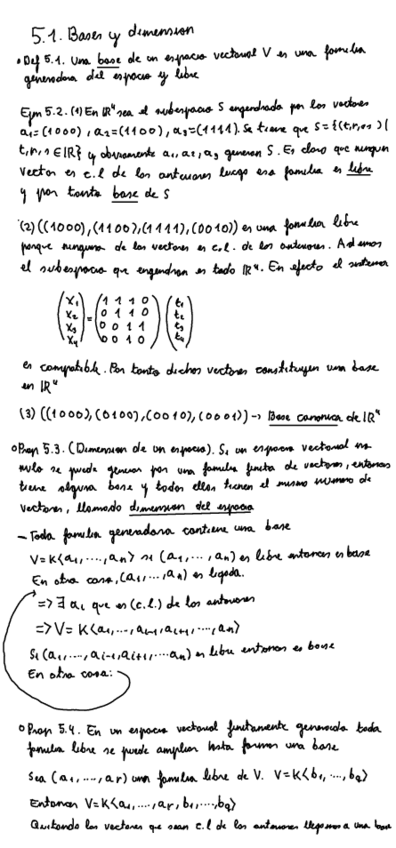 5.1. Bases y dimension
• Def 5.1. Una base de un espacio vectorial V es una familia
generadora del espacio y libre
Ejm 5.2. (1) En ℝ⁴ sea el subespacio S engendrado por los vectores
a₁=(1000), a₂=(1100), a₃=(1111). Se tiene que S={(t,r,s,s)|
t,r,s∈ℝ} y obviamente a₁, a₂, a₃ generan S. Es claro que ningun
vector es c.l de los anteriores luego esa familia es libre
y por tanto base de S
(2) ((1000),(1100),(1111),(0010)) es una familia libre
porque ninguno de los vectores es c.l. de los anteriores. Ademas
el subespacio que engendran es todo ℝ⁴. En efecto el sistema
(x₁) = (1 1 1 0) (t₁)
(x₂) (0 1 1 0) (t₂)
(x₃) (0 0 1 1) (t₃)
(x₄) (0 0 1 0) (t₄)
es compatible. Por tanto dichos vectores constituyen una base
en ℝ⁴
(3) ((1000),(0100),(0010),(0001)) → Base canonica de ℝ⁴
o Prop 5.3. (Dimension de un espacio). Si un espacio vectorial no
nulo se puede generar por una familia finita de vectores, entonces
tiene alguna base y todas ellas tienen el mismo numero de
vectores, llamado dimension del espacio
– Toda familia generadora contiene una base
V=K<a₁,...,aₙ> si (a₁,...,aₙ) es libre entonces es base
En otro caso, (a₁,...,aₙ) es ligada.
=> ∃ aᵢ que es (c.l.) de los anteriores
=> V= K<a₁,...,aᵢ₋₁,aᵢ₊₁,...,aₙ>
Si (a₁,...,aᵢ₋₁,aᵢ₊₁,...aₙ) es libre entonces es base
En otro caso:
o Prop 5.4. En un espacio vectorial finitamente generado toda
familia libre se puede ampliar hasta formar una base
Sea (a₁,...,ar) una familia libre de V. V=K<b₁,...,bq>
Entonces V=K<a₁,...,ar,b₁,...,bq>
Quitando los vectores que sean c.l de los anteriores llegamos a una base